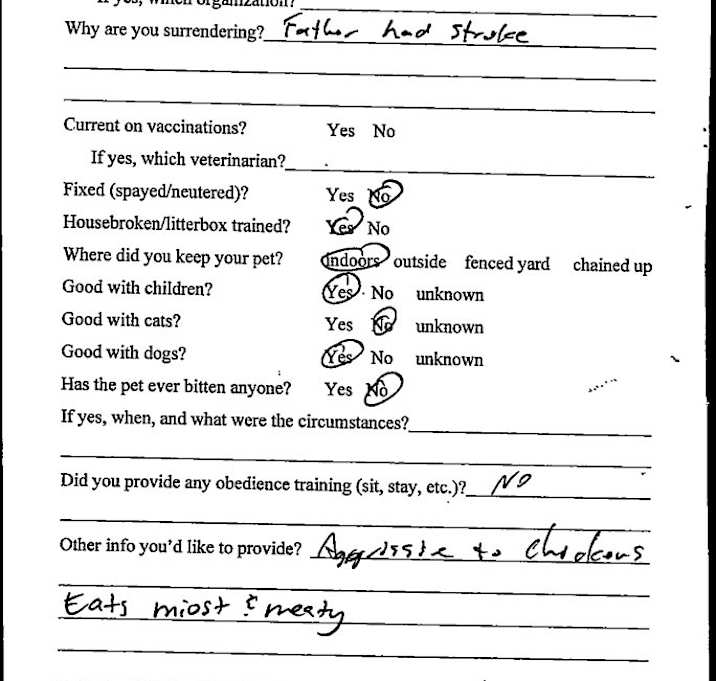 If yes, which organization?
Why are you surrendering? Father had stroke
Current on vaccinations? Yes No
If yes, which veterinarian?
Fixed (spayed/neutered)? Yes No
Housebroken/litterbox trained? Yes No
Where did you keep your pet? indoors outside fenced yard chained up
Good with children? Yes No unknown
Good with cats? Yes No unknown
Good with dogs? Yes No unknown
Has the pet ever bitten anyone? Yes No
If yes, when, and what were the circumstances?
Did you provide any obedience training (sit, stay, etc.)? NO
Other info you'd like to provide? Aggrissie to Chickens
Eats miost & meaty